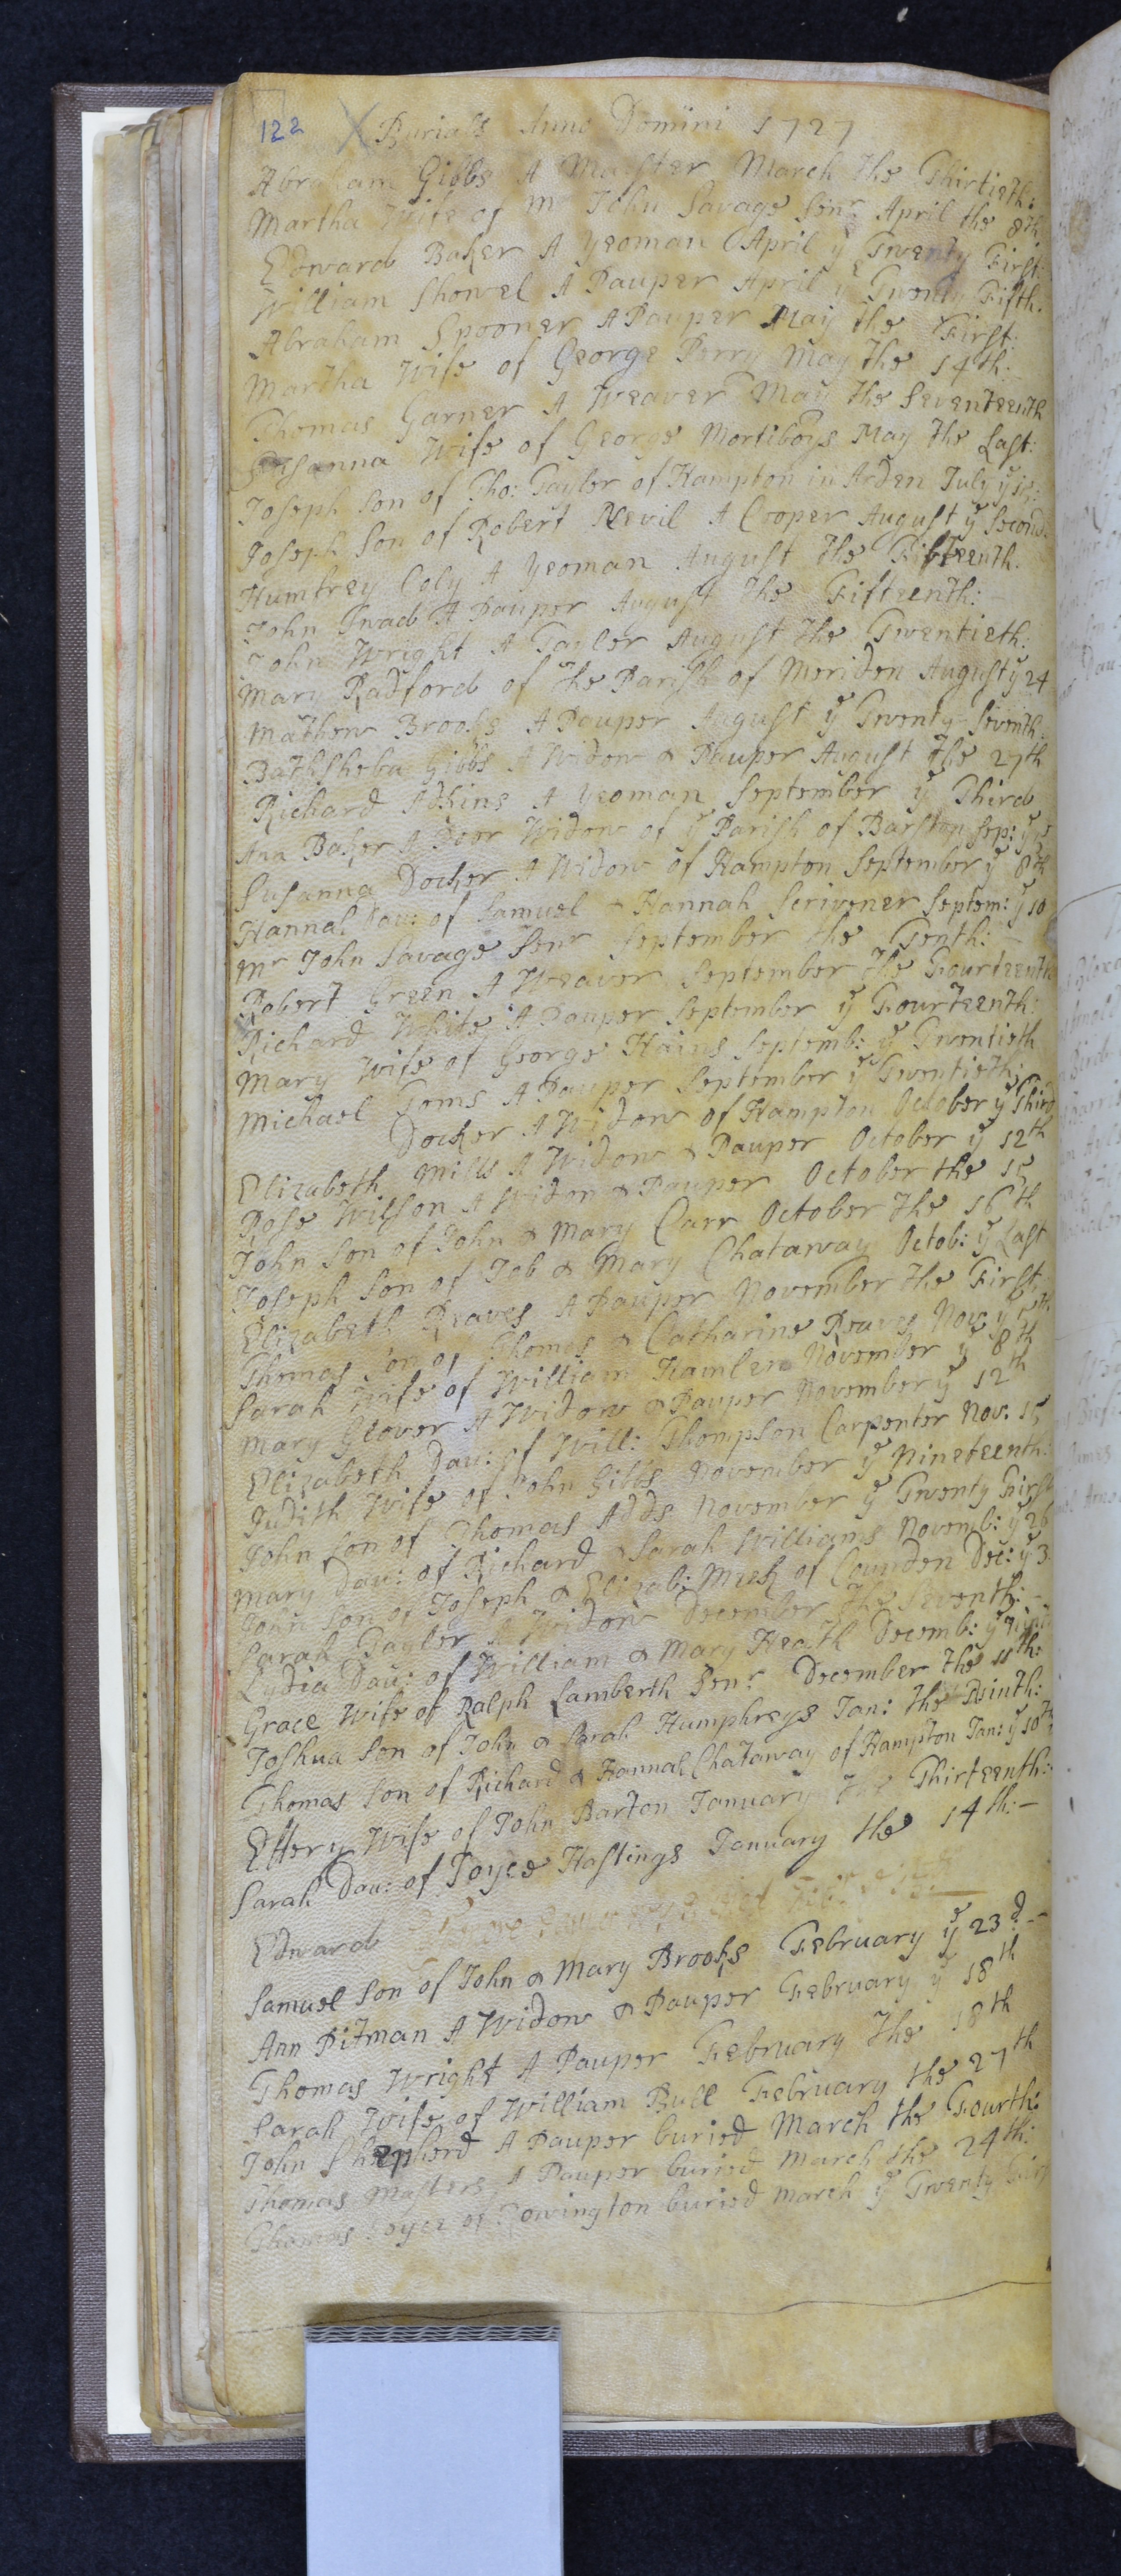 122 X Burials Anno Domini 1727
Abraham Gibbs A Maulster March the Thirtieth:
Martha Wife of Mr John Savage Senr April the 8th
Edward Baker A Yeoman April ye Twenty First:
William Showel A Pauper April ye Twenty Fifth.
Abraham Spooner A Pauper May the First:
Martha Wife of George Perry May the 14th:
Thomas Garner A Weaver May the Seventeenth
Susanna Wife of George Mortiboys May the Last:
Joseph Son of Tho: Taylor of Hampton in Arden July ye 15:
Joseph Son of Robert Nevil A Cooper August ye Second.
Humfrey Coly A Yeoman August the Fifteenth.
John Snad A Pauper August the Fifteenth:
John Wright A Tayler August the Twentieth:
Mary Radford of the Parish of Meriden August ye 24
Mathew Brooks A Pauper August ye Twenty Seventh.
Bathsheba Gibbs A Widow & Pauper August the 27th
Richard Adkins A Yeoman September ye Third
Ann Baker A Poor Widow of ye Parish of Barston Sep: ye
Susanna Docker A Widow of Hampton September ye 8th
Hannah Dau: of Samuel & Hannah Scrivener Septem: ye 10
Mr John Savage Senr September the Tenth:
Robert Green A Weaver September the Fourteenth
Richard White A Pauper September ye Fourteenth:
Mary Wife of George Hains Septemb: ye Twentieth
Michael Toms A Pauper September ye Twentieth:
Docker A Widow of Hampton October ye Third
Elizabeth Mills A Widow & Pauper October ye 12th
Rose Wilson A Widow & Pauper October the 15
John Son of John & Mary Carr October the 16th
Joseph Son of Job & Mary Chataway Octob: ye Last
Elizabeth Reaves A Pauper November the First.
Thomas Son of Thomas & Catharine Reaves Nov: ye 5th
Sarah Wife of William Hamlen November ye 8th
Mary Glover A Widow & Pauper November ye 12th
Elizabeth Dau: of Will: Thompson Carpenter Nov: 15
Judith Wife of John Gibbs November ye Nineteenth:
John Son of Thomas Adds November ye Twenty First
Mary Dau: of Richard & Sarah Williams Novemb: ye 26
John Son of Joseph & Elizab: Mush of Coundon Dec: ye 3
Sarah Tayler A Widow December the Seventh:
Lydia Dau: of William & Mary Heath Decemb: ye
Grace Wife of Ralph Lamberth Senr December the 11th:
Joshua Son of John & Sarah Humphreys Jan: the Ninth:
Thomas Son of Richard & Hannah Chataway of Hampton Jan: ye 10th
Essery Wife of John Barton January the Thirteenth:
Sarah Dau: of Joyce Hastings January the 14th:-
Edward
Samuel Son of John & Mary Brooks February ye 23d.-
Ann Pitman A Widow & Pauper February ye 18th
Thomas Wright A Pauper February the 18th
Sarah Wife of William Bull February the 27th
John Shepherd A Pauper buried March the Fourth:
Thomas Masters A Pauper buried March the 24th:
Thomas Joyce of Rowington buried March ye Twenty